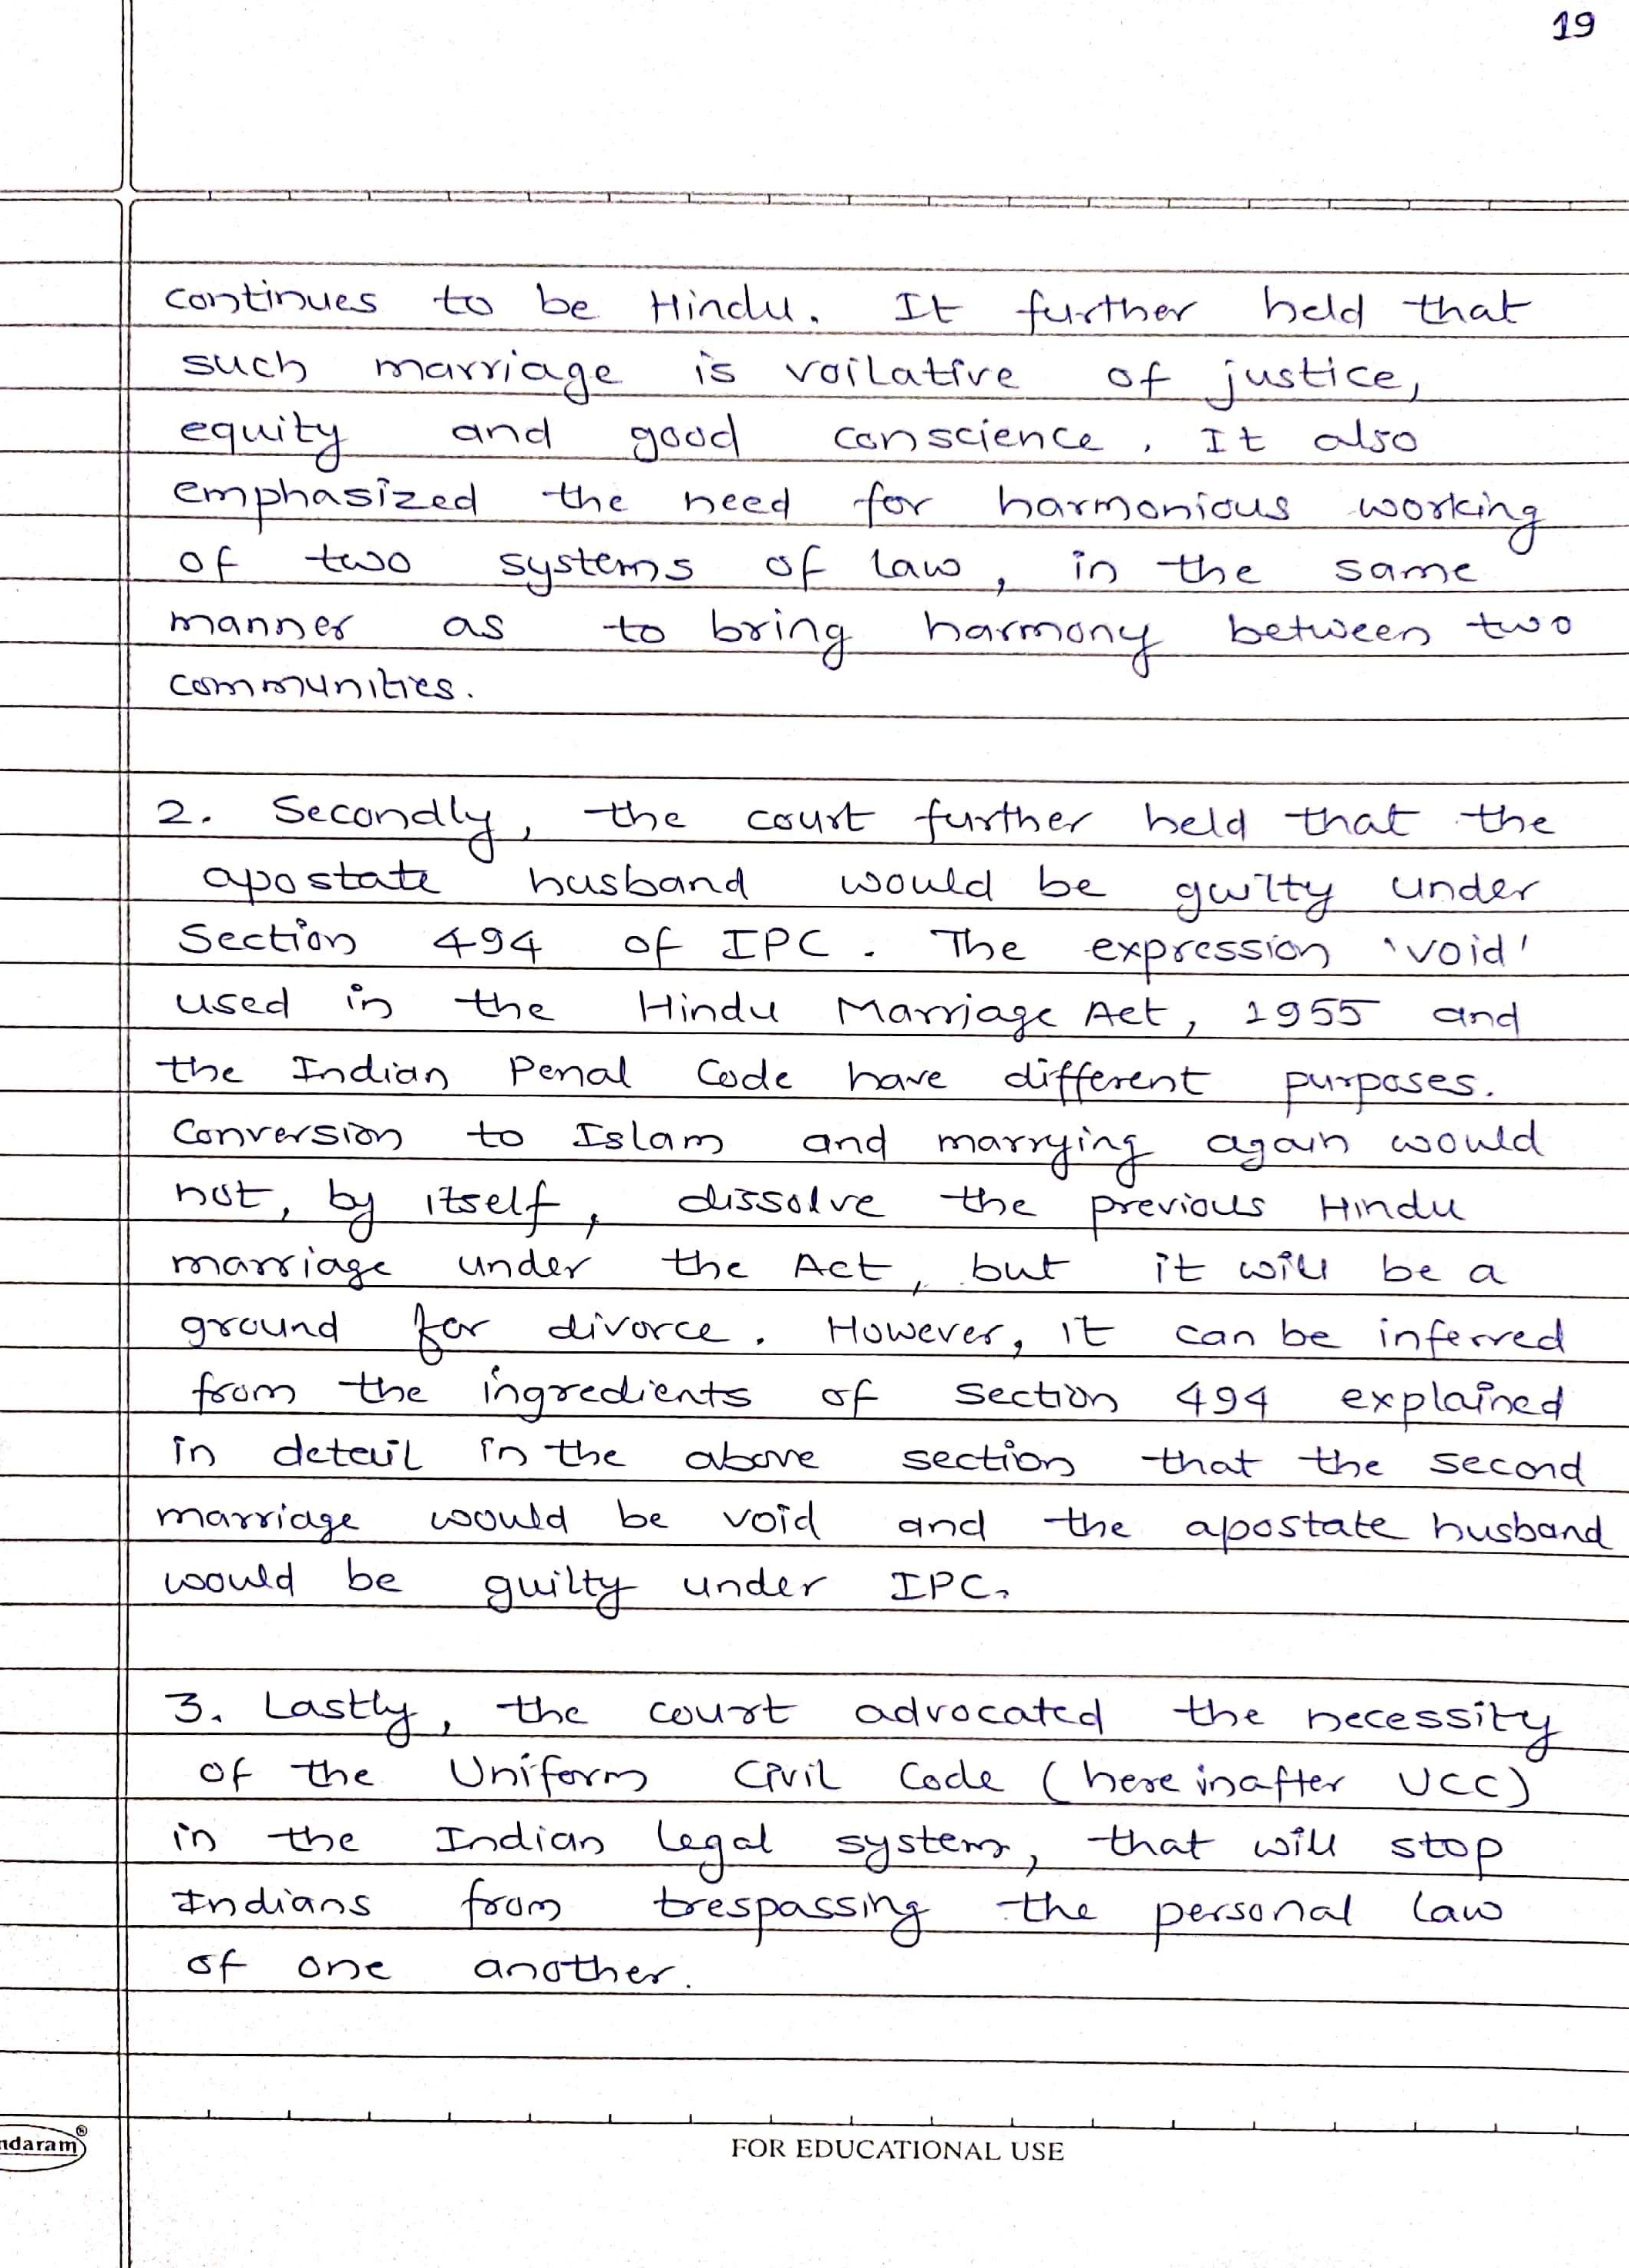 19
continues to be Hindu. It further held that
such marriage is voilative of justice,
equity and good conscience. It also
emphasized the need for harmonious working
of two systems of law, in the same
manner as to bring harmony between two
communities.
2. Secondly, the court further held that the
apostate husband would be guilty under
Section 494 of IPC. The expression 'void'
used in the Hindu Marriage Act, 1955 and
the Indian Penal Code have different purposes.
Conversion to Islam and marrying again would
not, by itself, dissolve the previous Hindu
marriage under the Act, but it will be a
ground for divorce. However, it can be inferred
from the ingredients of Section 494 explained
in detail in the above section that the second
marriage would be void and the apostate husband
would be guilty under IPC.
3. Lastly, the court advocated the necessity
of the Uniform Civil Code (hereinafter UCC)
in the Indian legal system, that will stop
Indians from trespassing the personal law
of one another.
ndaram®
FOR EDUCATIONAL USE